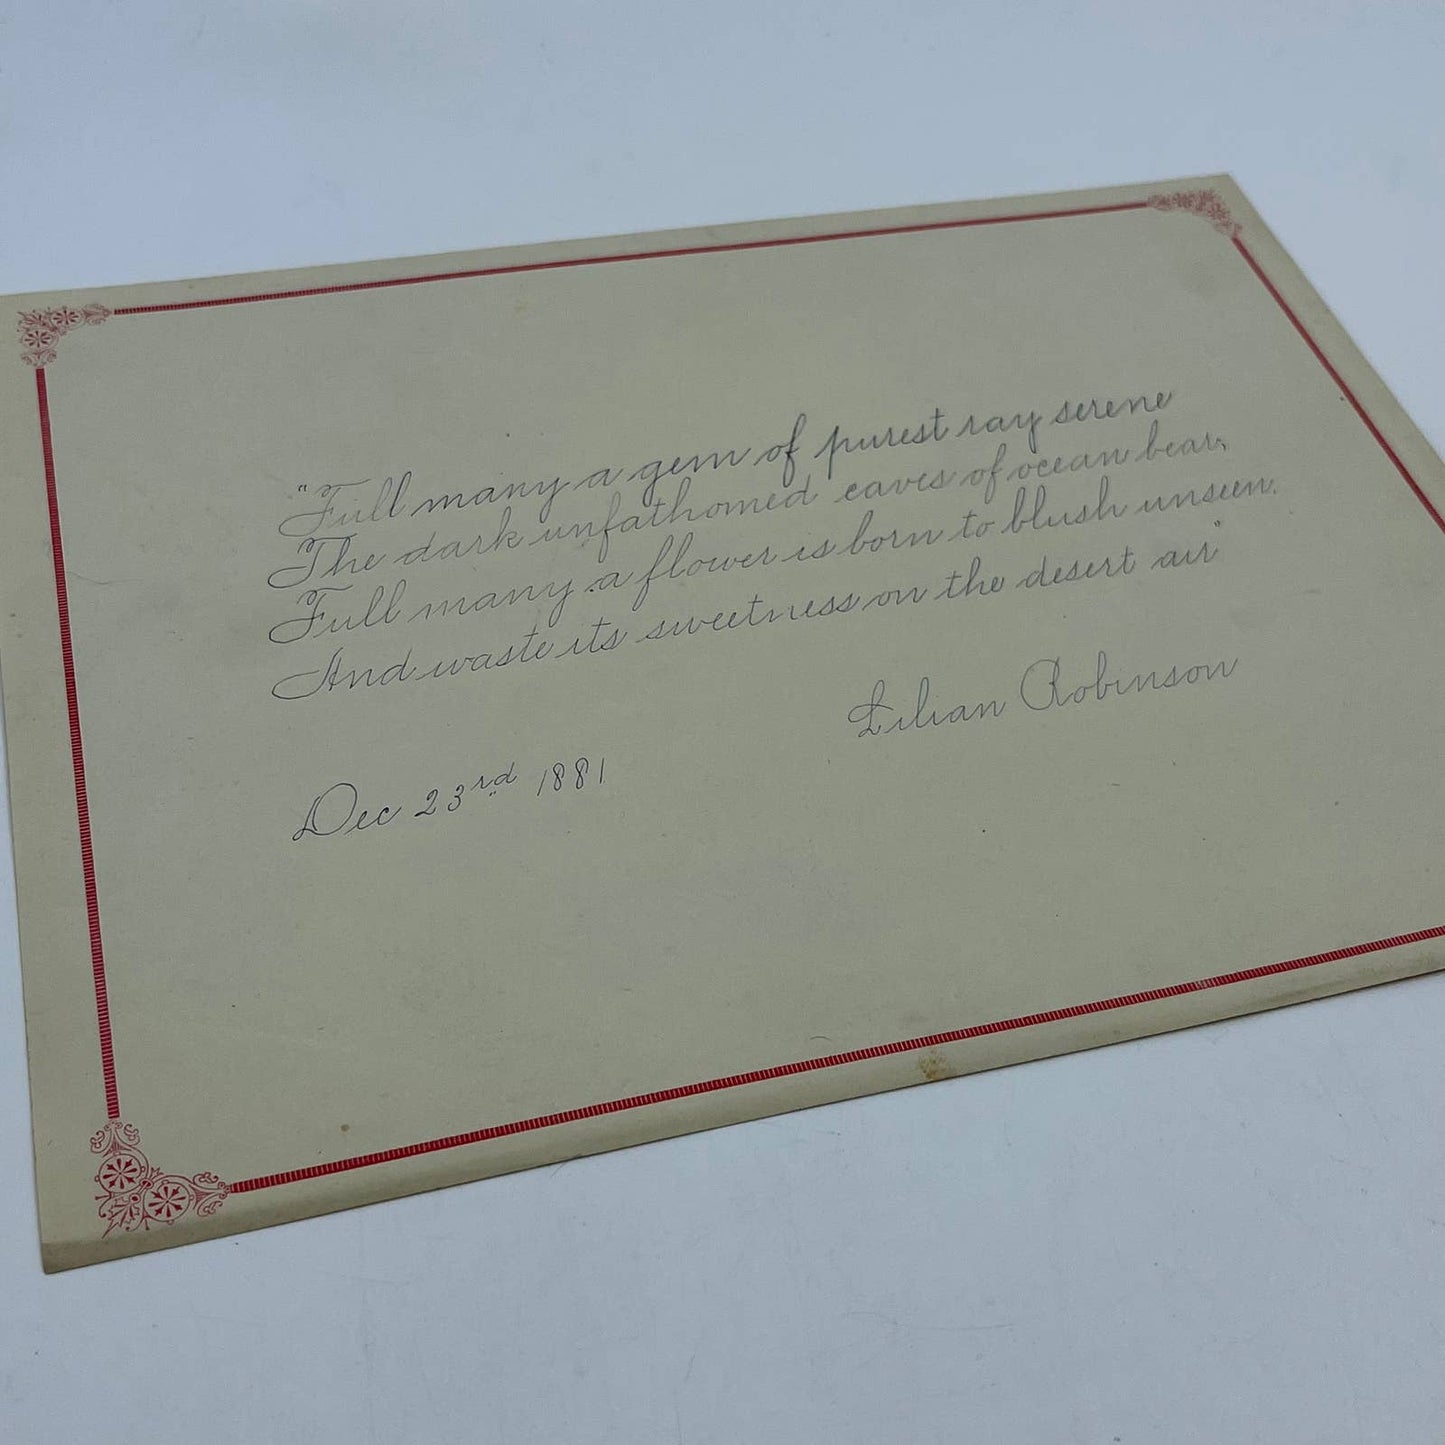 "Full many a gem of purest ray serene
The dark unfathomed caves of ocean bear,
Full many a flower is born to blush unseen.
And waste its sweetness on the desert air"
Lilian Robinson
Dec 23rd 1881